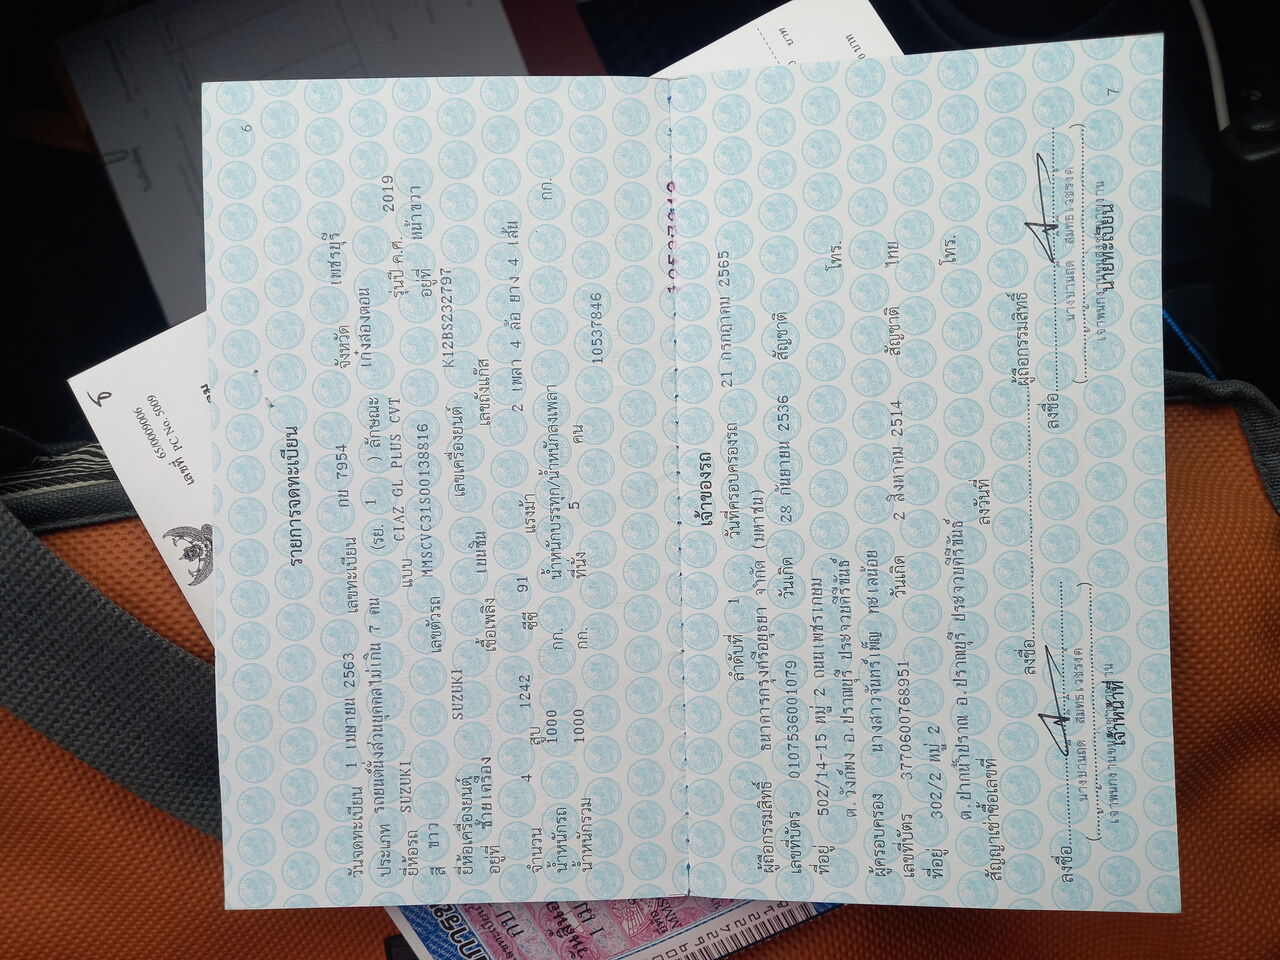 6
รายการจดทะเบียน
วันจดทะเบียน 1 เมษายน 2563 เลขทะเบียน กบ 7954 จังหวัด เพชรบุรี
ประเภท รถยนต์นั่งส่วนบุคคลไม่เกิน 7 คน (รย. 1 ) ลักษณะ เก๋งสองตอน
ยี่ห้อรถ SUZUKI แบบ CIAZ GL PLUS CVT รุ่นปี ค.ศ. 2019
สี ขาว เลขตัวรถ MMSCVC31S00138816 อยู่ที่ หน้าขวา
ยี่ห้อเครื่องยนต์ SUZUKI เลขเครื่องยนต์ K12BS232797
อยู่ที่ ซ้ายเครื่อง เชื้อเพลิง เบนซิน เลขถังแก๊ส
จำนวน 4 สูบ 1242 ซีซี 91 แรงม้า 2 เพลา 4 ล้อ ยาง 4 เส้น
น้ำหนักรถ 1000 กก. น้ำหนักบรรทุก/น้ำหนักลงเพลา กก.
น้ำหนักรวม 1000 กก. ที่นั่ง 5 คน
10537846
7
เจ้าของรถ
ลำดับที่ 1 วันที่ครอบครองรถ 21 กรกฎาคม 2565
ผู้ถือกรรมสิทธิ์ ธนาคารกรุงศรีอยุธยา จำกัด (มหาชน)
เลขที่บัตร 0107536001079 วันเกิด 28 กันยายน 2536 สัญชาติ
ที่อยู่ 502/14-15 หมู่ 2 ถนนเพชรเกษม
ต.วังก์พง อ.ปราณบุรี ประจวบคีรีขันธ์ โทร.
ผู้ครอบครอง นางสาวจันทร์เพ็ญ ทะเลน้อย
เลขที่บัตร 3770600768951 วันเกิด 2 สิงหาคม 2514 สัญชาติ ไทย
ที่อยู่ 302/2 หมู่ 2
ต.ปากน้ำปราณ อ.ปราณบุรี ประจวบคีรีขันธ์ โทร.
สัญญาเช่าซื้อเลขที่ ลงวันที่
ลงชื่อ ผู้ถือกรรมสิทธิ์
ลงชื่อ ลงชื่อ
เจ้าหน้าที่ นายทะเบียน
เลขที่ 65/0009006
PC No. 5009
บาท
บาท